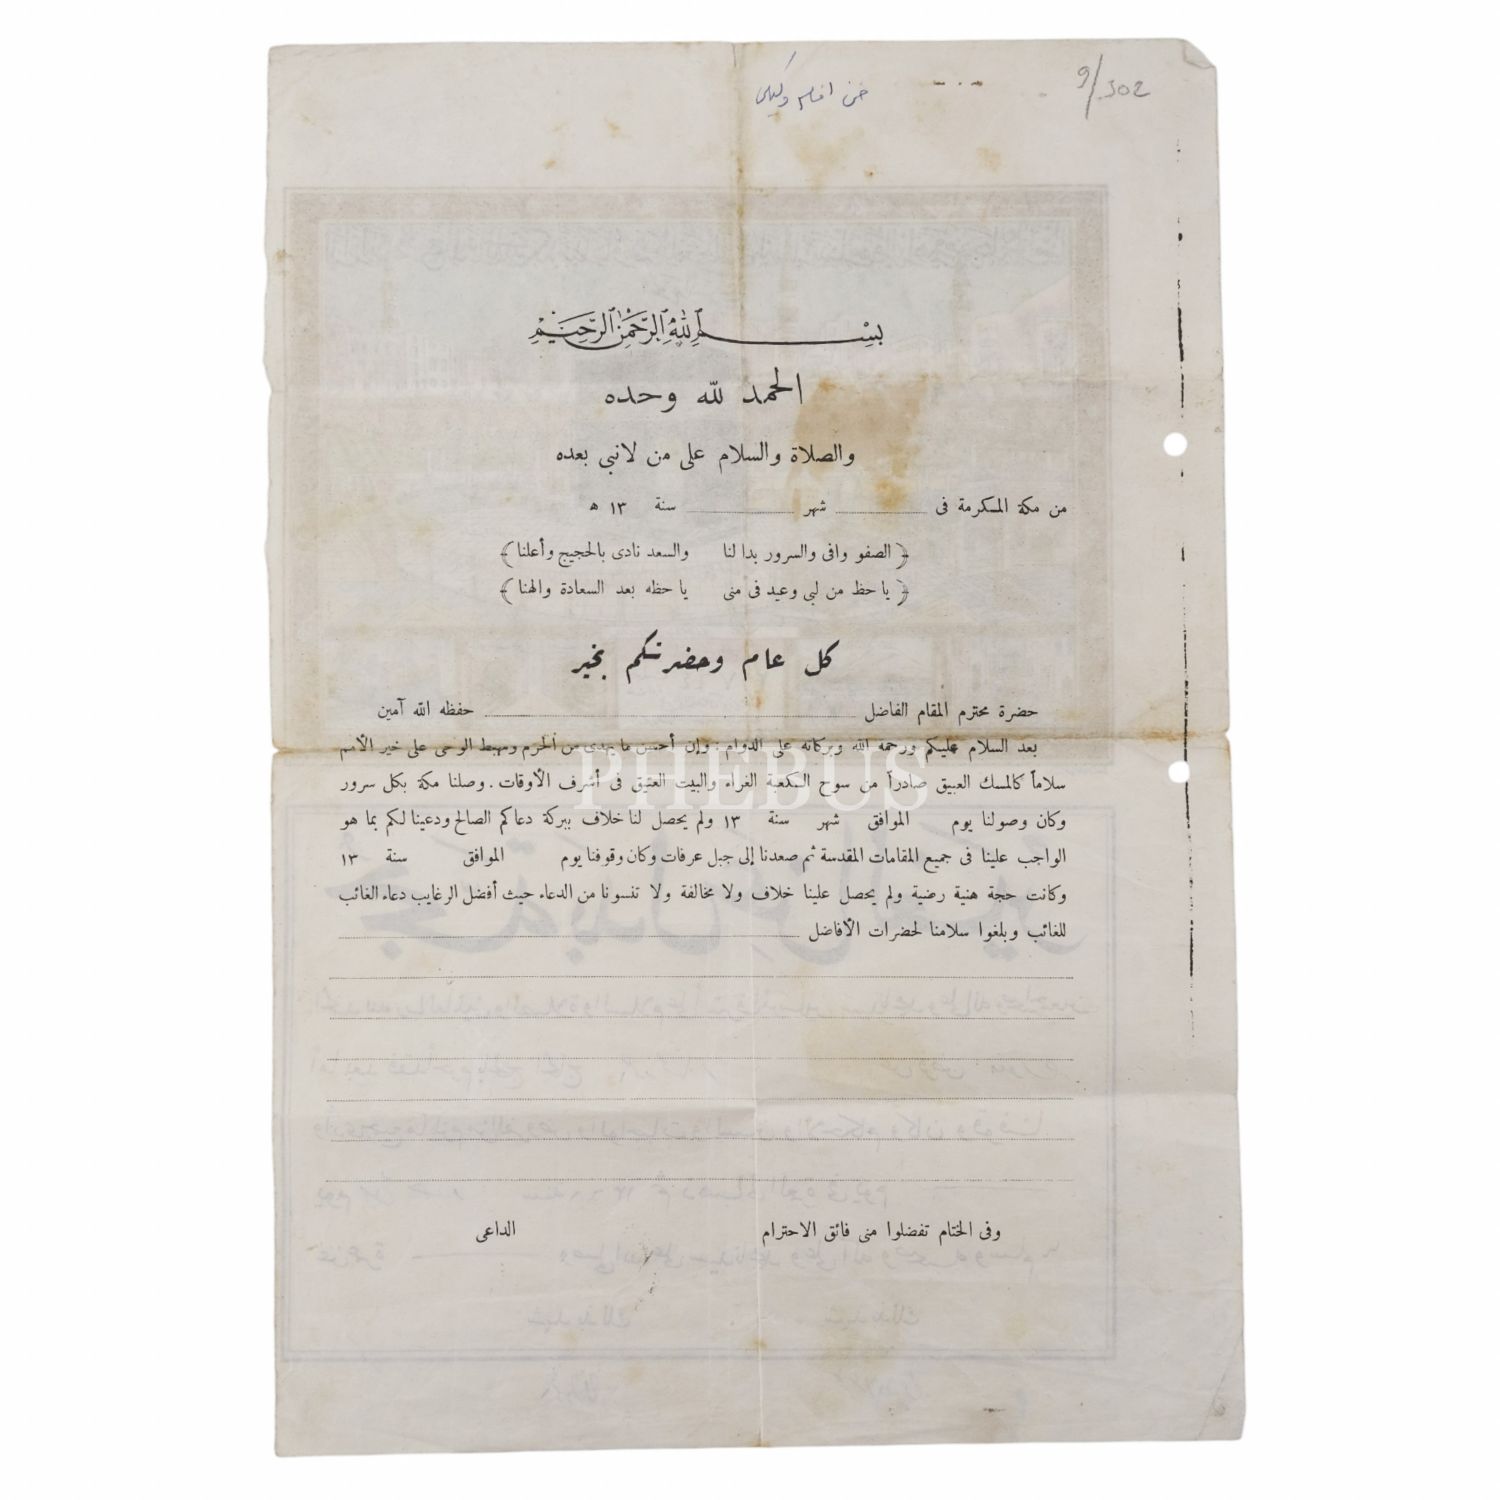 9/302
بِسْمِ اللَّهِ الرَّحْمَنِ الرَّحِيمِ
الحمد لله وحده
والصلاة والسلام على من لا نبى بعده
من مكة المكرمة فى ............ شهر ............ سنة ١٣ هـ
﴿ الصفو وافى والسرور بدا لنا والسعد نادى بالحجيج وأعلنا ﴾
﴿ يا حظ من لبى وعيد فى منى يا حظه بعد السعادة والهنا ﴾
كل عام وحضرتكم بخير
حضرة محترم المقام الفاضل ............ حفظه الله آمين
بعد السلام عليكم ورحمة الله وبركاته على الدوام : وإن أحسن ما يهدى من الحرم ومهبط الوحى على خير الأمم
سلاماً كالمسك العبيق صادراً من سوح الكعبة الغراء والبيت العتيق فى أشرف الأوقات . وصلنا مكة بكل سرور
وكان وصولنا يوم الموافق شهر سنة ١٣ ولم يحصل لنا خلاف ببركة دعاكم الصالح ودعينا لكم بما هو
الواجب علينا فى جميع المقامات المقدسة ثم صعدنا إلى جبل عرفات وكان وقوفنا يوم الموافق سنة ١٣
وكانت حجة هنية رضية ولم يحصل علينا خلاف ولا مخالفة ولا تنسونا من الدعاء حيث أفضل الرغايب دعاء الغائب
للغائب وبلغوا سلامنا لحضرات الأفاضل ............
وفى الختام تفضلوا منى فائق الاحترام الداعى
PHEBUS